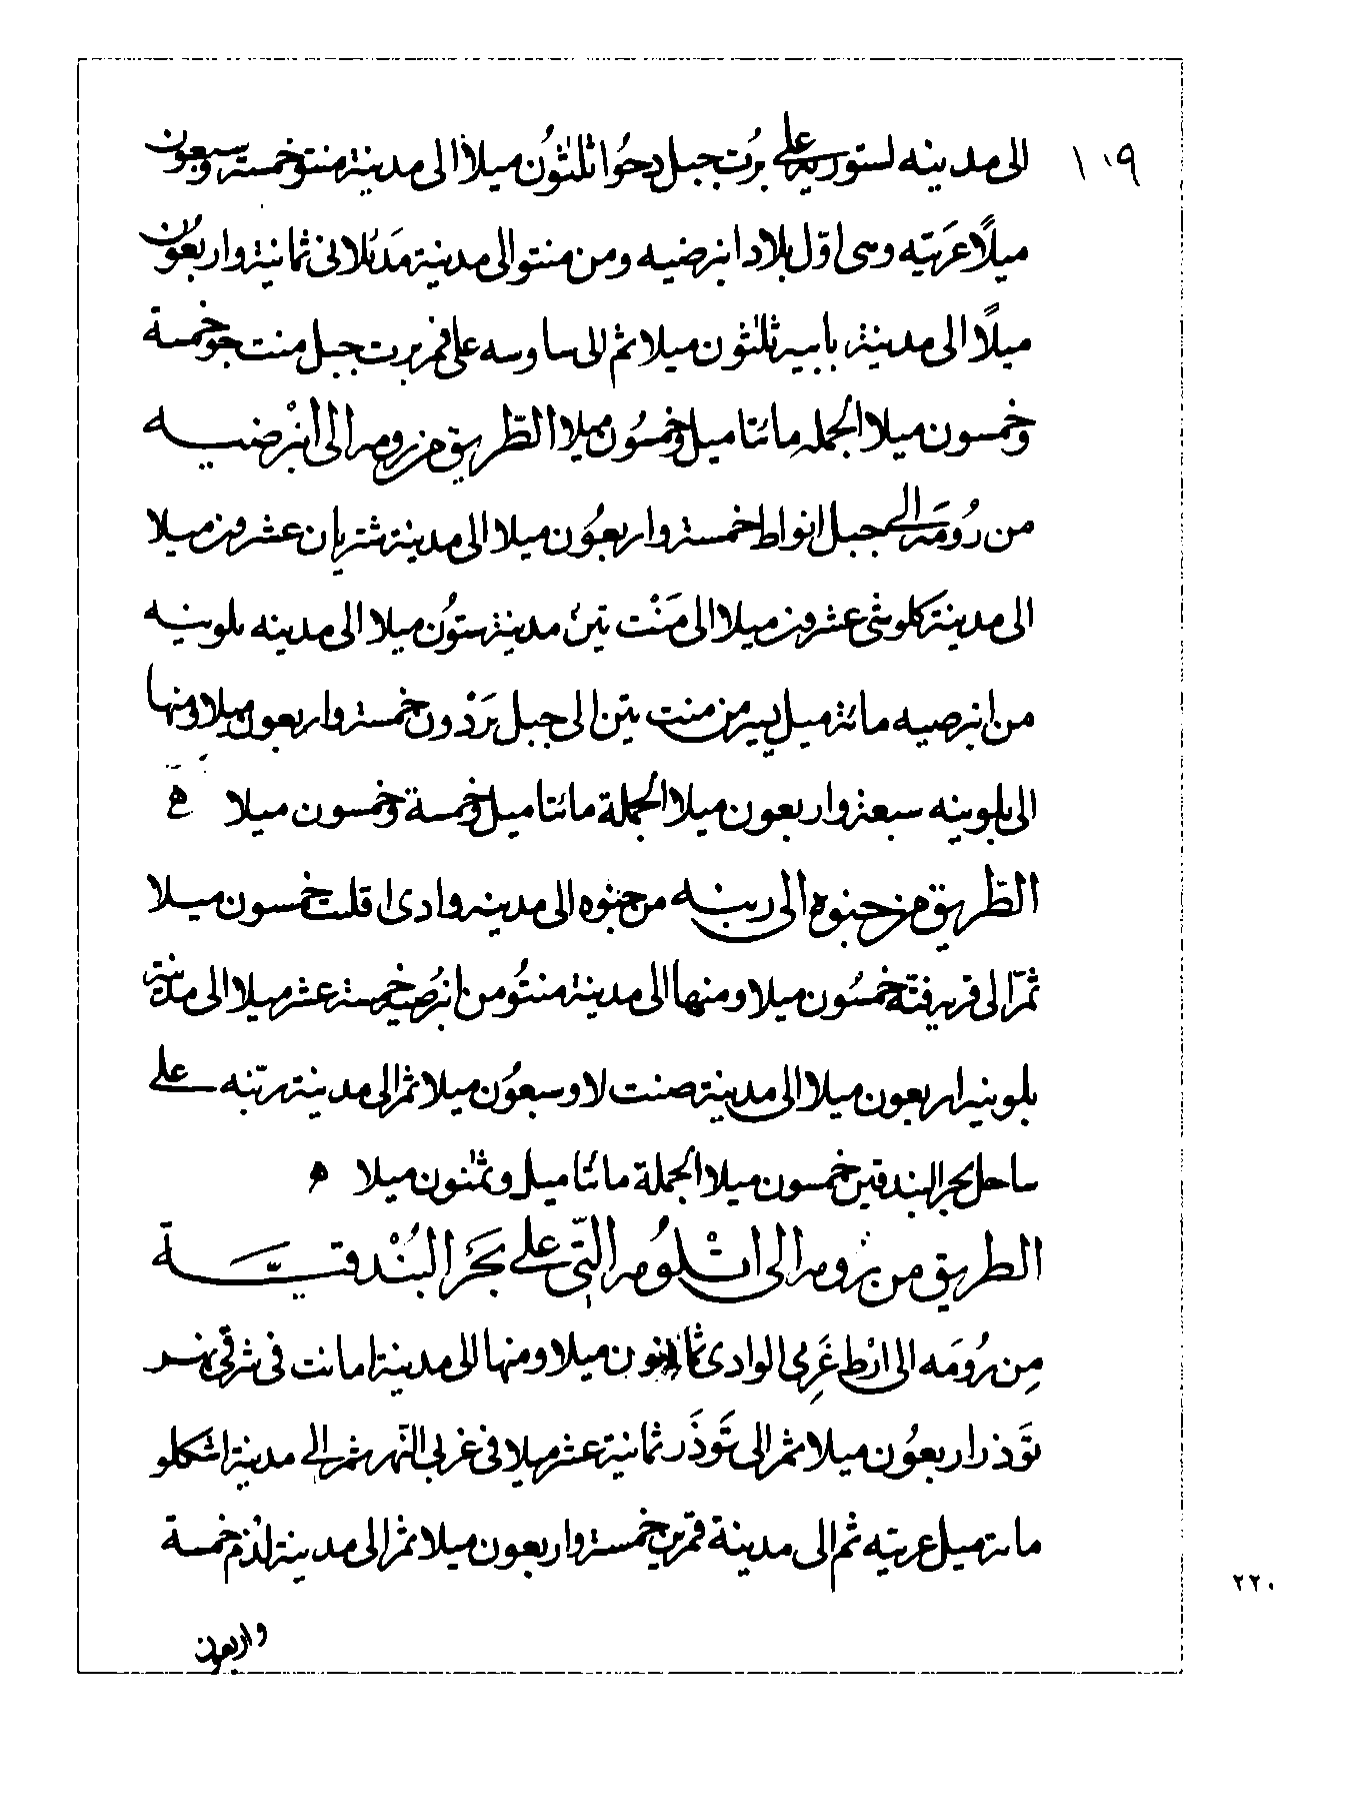 ١٠٩
الى مدينه لستوريه على برت جبل دحوا ثلثون ميلا الى مدينة منتو خمسة وسبعون
ميلا عربيه وهى اول بلاد انبرضيه ومن منتو الى مدينة مديلانى ثمانية واربعون
ميلا الى مدينة بابيه ثلثون ميلا ثم الى ساوسه على فم برت جبل منت جو خمسة
وخمسون ميلا الجمله مائتا ميل وخمسون ميلا الطريق من رومه الى انبرضيه
من رومه الى جبل انواط خمسة واربعون ميلا الى مدينة شتريان عشرون ميلا
الى مدينة كلوشى عشرون ميلا الى منت تين مدينة ستون ميلا الى مدينه بلونيه
من انبرضيه مائة ميل يسير من منت تين الى جبل بردون خمسة واربعون ميلا ومنها
الى بلونيه سبعة واربعون ميلا الجملة مائتا ميل وخمسة وخمسون ميلا ه
الطريق من جنوه الى ربنه من جنوه الى مدينه وادى اقلت خمسون ميلا
ثم الى قريه فته خمسون ميلا ومنها الى مدينة منتو من انبرضيه خمسة عشر ميلا الى مدينة
بلونيه اربعون ميلا الى مدينة صنت لا وسبعون ميلا ثم الى مدينة ربنه على
ساحل بحر البندقين خمسون ميلا الجملة مائتا ميل وثمنون ميلا ه
الطريق من رومه الى انلومه التى على بحر البندقيــة
من رومه الى ارط غربى الوادى ثمانون ميلا ومنها الى مدينة امانت فى شرقى نهر
توذر اربعون ميلا ثم الى توذر ثمانية عشر ميلا فى غربى النهر ثم الى مدينة اشكلو
مائة ميل عربيه ثم الى مدينة قمرين خمسة واربعون ميلا ثم الى مدينة لذم خمسة
واربعون
٢٢٠